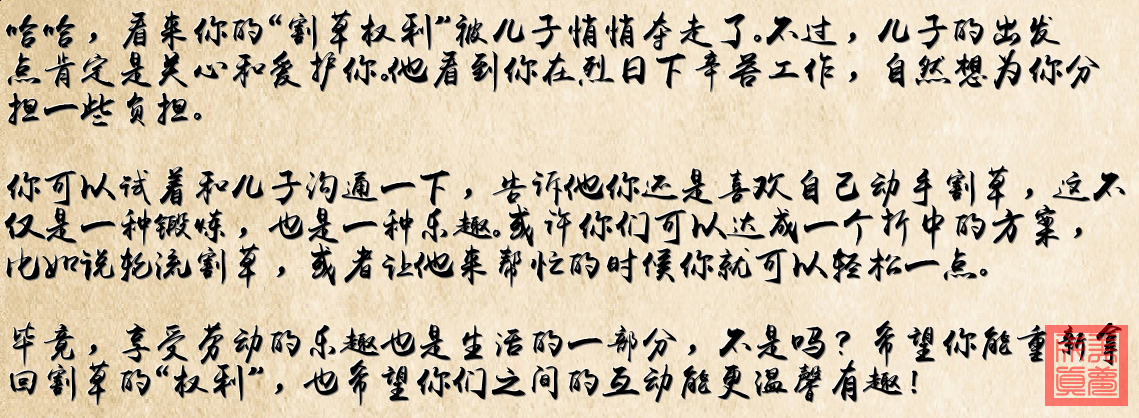 哈哈，看来你的“割草权利”被儿子悄悄夺走了。不过，儿子的出发
点肯定是关心和爱护你。他看到你在烈日下辛苦工作，自然想为你分
担一些负担。
你可以试着和儿子沟通一下，告诉他你还是喜欢自己动手割草，这不
仅是一种锻炼，也是一种乐趣。或许你们可以达成一个折中的方案，
比如说轮流割草，或者让他来帮忙的时候你就可以轻松一点。
毕竟，享受劳动的乐趣也是生活的一部分，不是吗？希望你能重新拿
回割草的“权利”，也希望你们之间的互动能更温馨有趣！